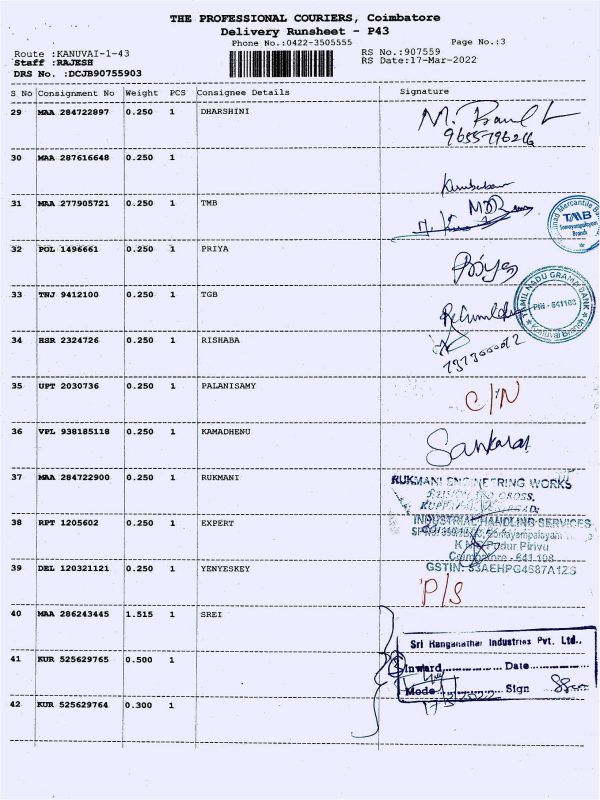 THE PROFESSIONAL COURIERS, Coimbatore
Delivery Runsheet - P43
Phone No.:0422-3505555
Page No.:3
Route :KANUVAI-1-43
RS No.:907559
Staff :RAJESH
RS Date:17-Mar-2022
DRS No. :DCJB90755903
S No Consignment No Weight PCS Consignee Details Signature
29 MAA 284722897 0.250 1 DHARSHINI
9655796216
30 MAA 287616648 0.250 1
31 MAA 277905721 0.250 1 TMB
TMB
Somayampalayam
Branch
32 POL 1496661 0.250 1 PRIYA
Priya
33 TNJ 9412100 0.250 1 TGB
TAMIL NADU GRAMA BANK
PIN - 641108
Kanuvai Branch
34 HSR 2324726 0.250 1 RISHABA
7373000012
35 UPT 2030736 0.250 1 PALANISAMY
C/N
36 VPL 938185118 0.250 1 KAMADHENU
Sankaran
37 MAA 284722900 0.250 1 RUKMANI
RUKMANI ENGINEERING WORKS
38 RPT 1205602 0.250 1 EXPERT
INDUSTRIAL HANDLING SERVICES
Somayampalayam
K N G Pudur Pirivu
Coimbatore - 641 108
39 DEL 120321121 0.250 1 YENYESKEY
GSTIN: 33AEHPG4587A1ZS
P/S
40 MAA 286243445 1.515 1 SREI
Sri Ranganathar Industries Pvt. Ltd.,
41 KUR 525629765 0.500 1
Inward Date
Mode Sign
17/3/2022
42 KUR 525629764 0.300 1